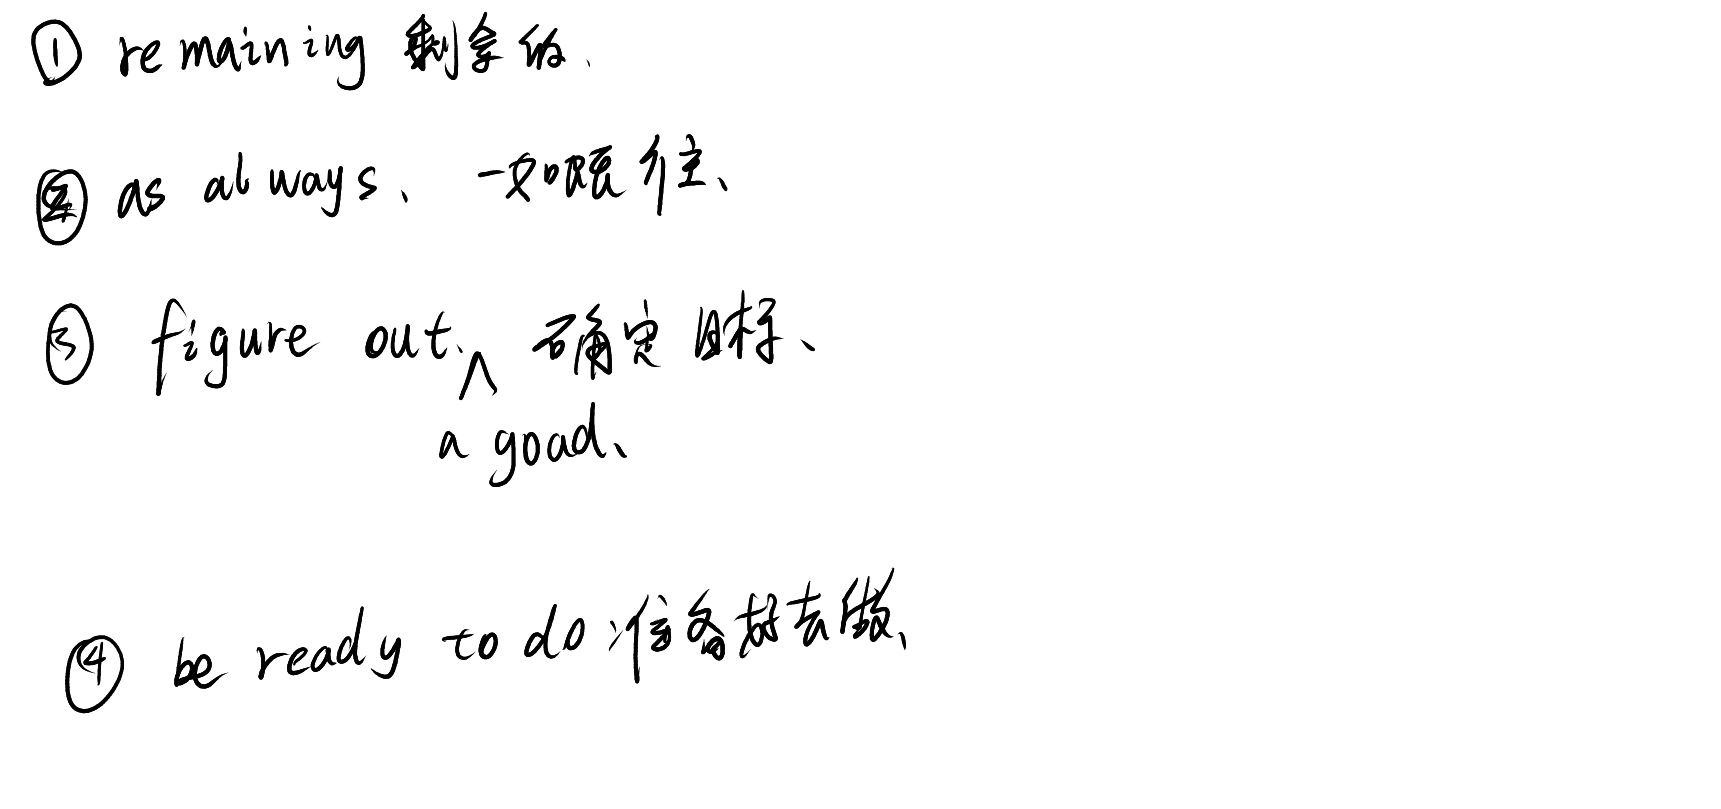 ① remaining 剩余的.
② as always、一如既往、
③ figure out. ∧ 确定目标、
a goad、
④ be ready to do 准备好去做、